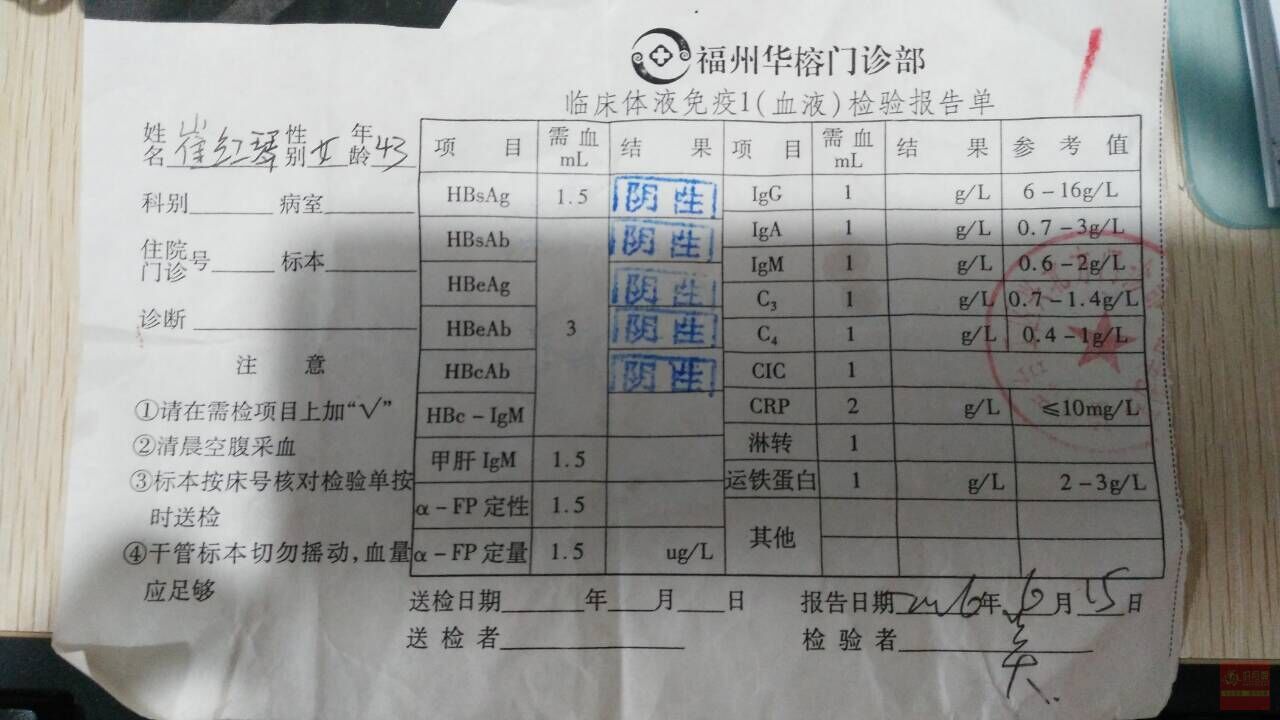 福州华榕门诊部
临床体液免疫1(血液)检验报告单
姓名 崔红琴 性别 女 年龄 43
科别 病室
住院门诊号 标本
诊断
注 意
①请在需检项目上加“√”
②清晨空腹采血
③标本按床号核对检验单按
时送检
④干管标本切勿摇动,血量
应足够
项 目 需血mL 结 果 项 目 需血mL 结 果 参考值
HBsAg 1.5 阴性 IgG 1 g/L 6-16g/L
HBsAb 阴性 IgA 1 g/L 0.7-3g/L
HBeAg 阴性 IgM 1 g/L 0.6-2g/L
HBeAb 3 阴性 C₃ 1 g/L 0.7-1.4g/L
HBcAb 阴性 C₄ 1 g/L 0.4-1g/L
HBc-IgM CIC 1
甲肝 IgM 1.5 CRP 2 g/L ≤10mg/L
α-FP 定性 1.5 淋转 1
α-FP 定量 1.5 ug/L 运铁蛋白 1 g/L 2-3g/L
其他
送检日期 年 月 日 报告日期 2016年 6月 15日
送检者 检验者